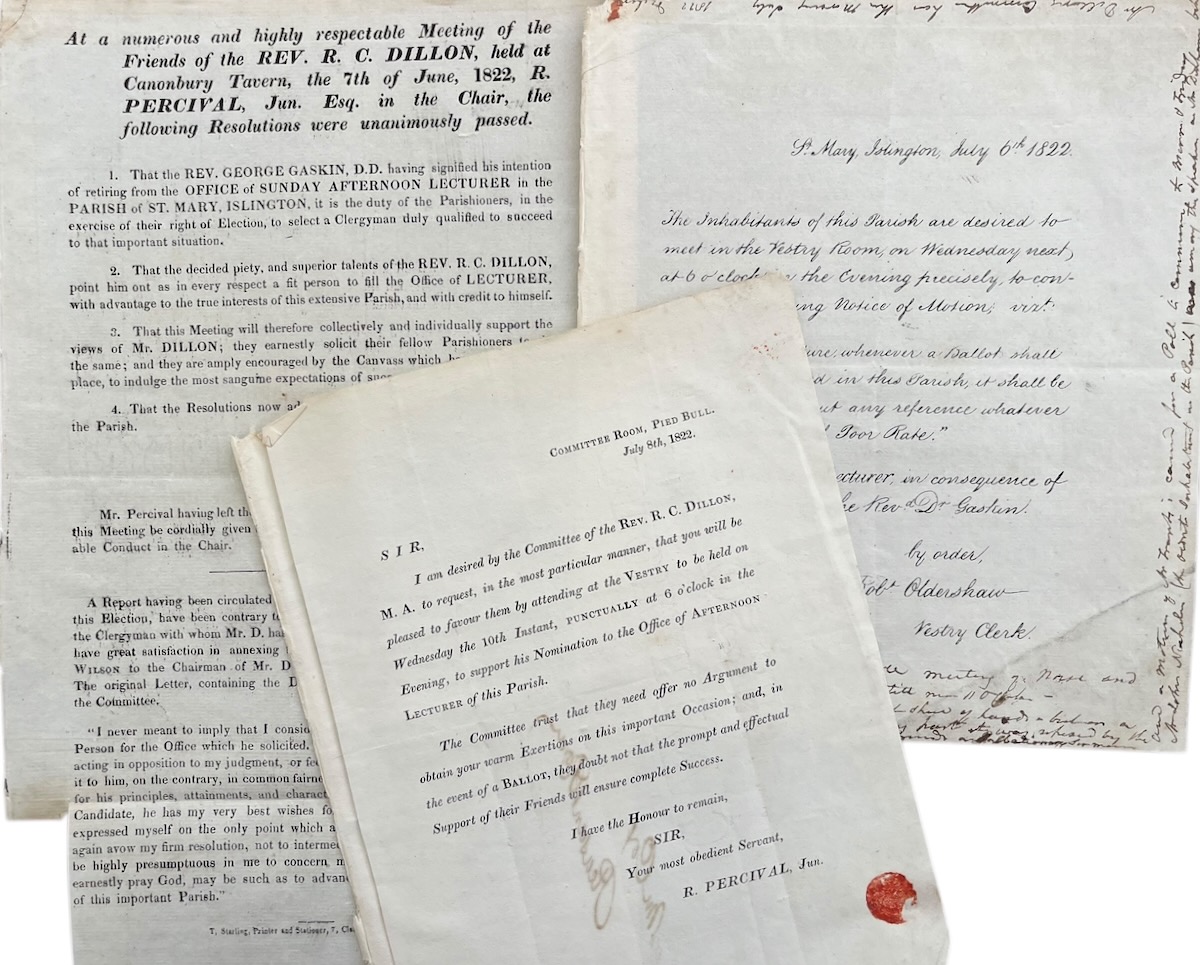 At a numerous and highly respectable Meeting of the
Friends of the REV. R. C. DILLON, held at
Canonbury Tavern, the 7th of June, 1822, R.
PERCIVAL, Jun. Esq. in the Chair, the
following Resolutions were unanimously passed.
1. That the REV. GEORGE GASKIN, D.D. having signified his intention
of retiring from the OFFICE of SUNDAY AFTERNOON LECTURER in the
PARISH of ST. MARY, ISLINGTON, it is the duty of the Parishioners, in the
exercise of their right of Election, to select a Clergyman duly qualified to succeed
to that important situation.
2. That the decided piety, and superior talents of the REV. R. C. DILLON,
point him out as in every respect a fit person to fill the Office of LECTURER,
with advantage to the true interests of this extensive Parish, and with credit to himself.
3. That this Meeting will therefore collectively and individually support the
views of Mr. DILLON; they earnestly solicit their fellow Parishioners
the same; and they are amply encouraged by the Canvass which
place, to indulge the most sanguine expectations of
4. That the Resolutions now
the Parish.
Mr. Percival having left
this Meeting be cordially given
able Conduct in the Chair.
A Report having been circulated
this Election, have been contrary
the Clergyman with whom Mr. D.
have great satisfaction in annexing
WILSON to the Chairman of Mr. D
The original Letter, containing the
the Committee.
"I never meant to imply that I
Person for the Office which he solicited.
acting in opposition to my judgment, or
it to him, on the contrary, in common
for his principles, attainments, and
Candidate, he has my very best wishes
expressed myself on the only point which
again avow my firm resolution, not to
be highly presumptuous in me to concern
earnestly pray God, may be such as to
of this important Parish."
T. Starling, Printer and Stationer, 7,
St. Mary, Islington, July 6th 1822.
The Inhabitants of this Parish are desired to
meet in the Vestry Room, on Wednesday next,
at 6 o'clock in the Evening precisely, to con-
Notice of Motion, vizt.
whenever a Ballot shall
in this Parish, it shall be
any reference whatever
Poor Rate."
in consequence of
Revd. Dr Gaskin.
by order,
Robt Oldershaw
Vestry Clerk.
COMMITTEE ROOM, PIED BULL.
July 8th, 1822.
SIR,
I am desired by the Committee of the REV. R. C. DILLON,
M. A. to request, in the most particular manner, that you will be
pleased to favour them by attending at the VESTRY to be held on
Wednesday the 10th Instant, PUNCTUALLY at 6 o'clock in the
Evening, to support his Nomination to the Office of AFTERNOON
LECTURER of this Parish.
The Committee trust that they need offer no Argument to
obtain your warm Exertions on this important Occasion; and, in
the event of a BALLOT, they doubt not that the prompt and effectual
Support of their Friends will ensure complete Success.
I have the Honour to remain,
SIR,
Your most obedient Servant,
R. PERCIVAL, Jun.